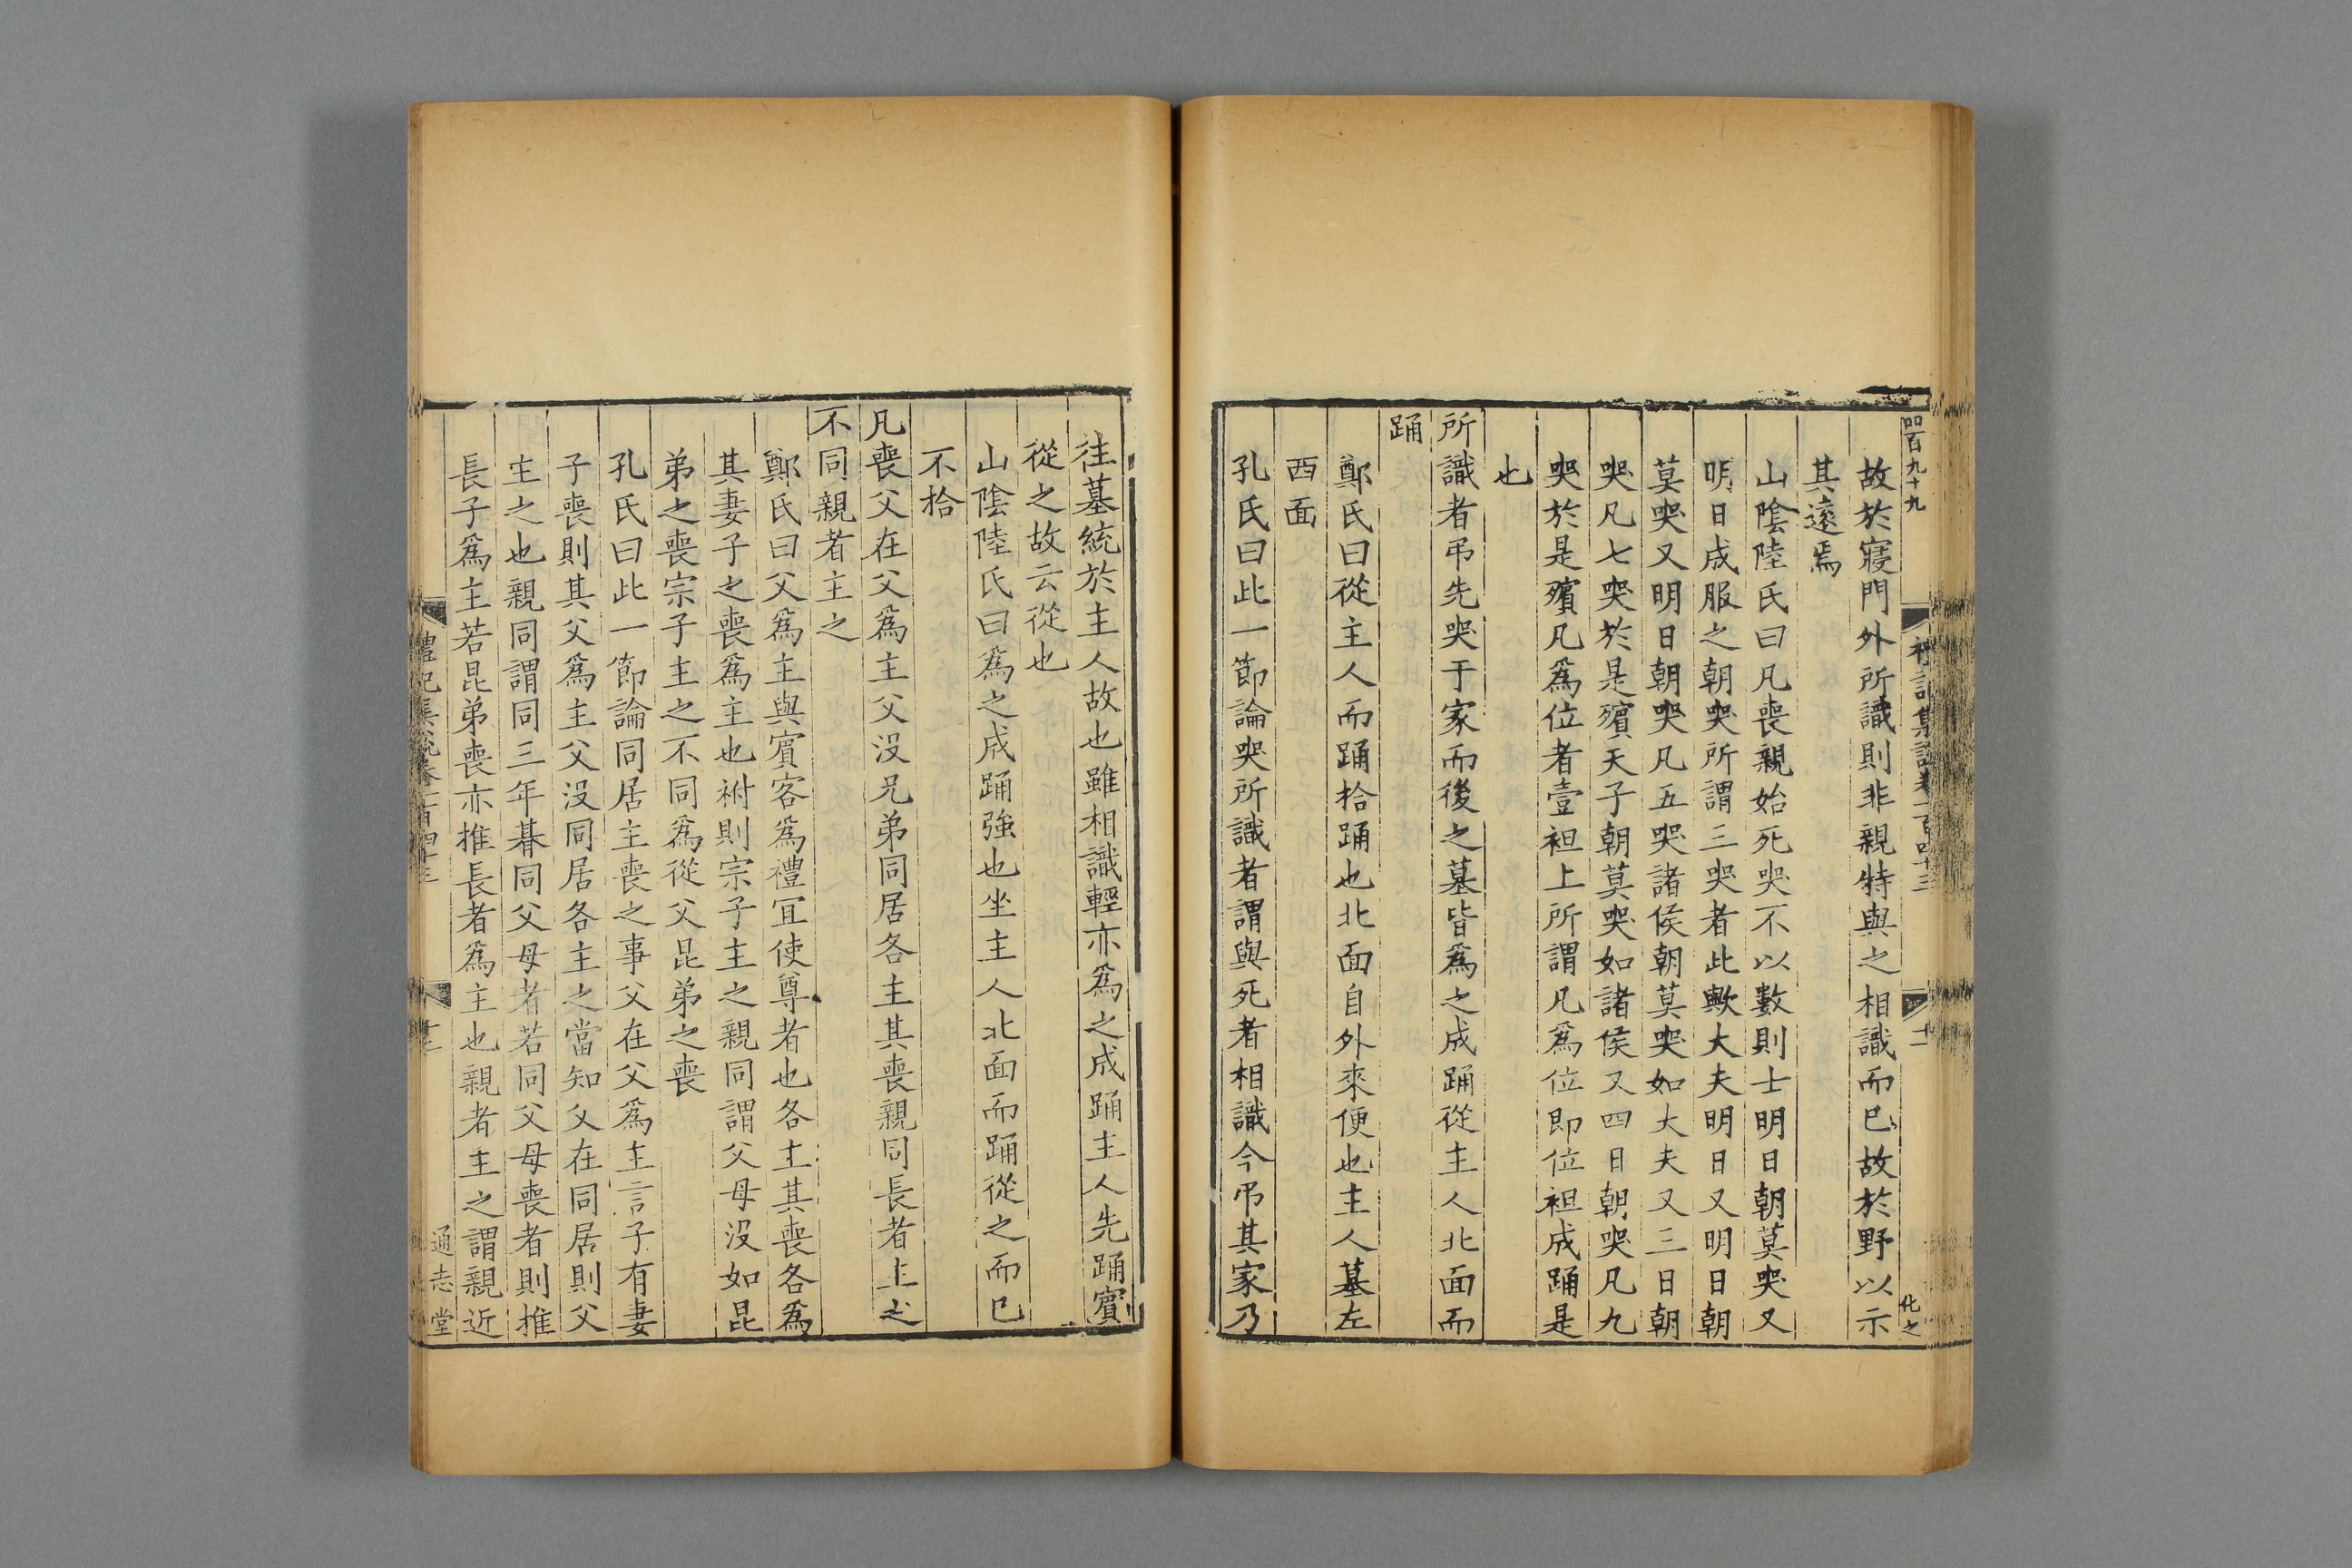 四百九十九
禮記集說卷一百四十三
十一
化之
故於寢門外所識則非親特與之相識而已故於野以示
其遠焉
山陰陸氏曰凡喪親始死哭不以數則士明日朝莫哭又
明日成服之朝哭所謂三哭者此歟大夫明日又明日朝
莫哭又明日朝哭凡五哭諸侯朝莫哭如大夫又三日朝
哭凡七哭於是殯天子朝莫哭如諸侯又四日朝哭凡九
哭於是殯凡爲位者壹袒上所謂凡爲位即位袒成踊是
也
所識者弔先哭于家而後之墓皆爲之成踊從主人北面而
踊
鄭氏曰從主人而踊拾踊也北面自外來便也主人墓左
西面
孔氏曰此一節論哭所識者謂與死者相識今弔其家乃
往墓統於主人故也雖相識輕亦爲之成踊主人先踊賓
從之故云從也
山陰陸氏曰爲之成踊強也坐主人北面而踊從之而已
不拾
凡喪父在父爲主父沒兄弟同居各主其喪親同長者主之
不同親者主之
鄭氏曰父爲主與賓客爲禮宜使尊者也各主其喪各爲
其妻子之喪爲主也祔則宗子主之親同謂父母沒如昆
弟之喪宗子主之不同爲從父昆弟之喪
孔氏曰此一節論同居主喪之事父在父爲主言子有妻
子喪則其父爲主父沒同居各主之當知父在同居則父
主之也親同謂同三年朞同父母者若同父母喪者則推
長子爲主若昆弟喪亦推長者爲主也親者主之謂親近
禮記集說卷一百四十三
十二
通志堂